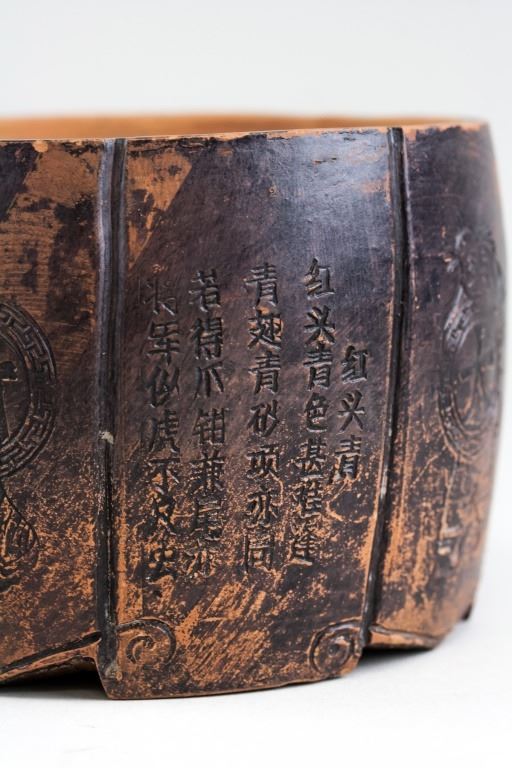 红头青
红头青色甚逢
青翅青砂项亦同
若得爪钳兼尾亦
将军似虎不及虫